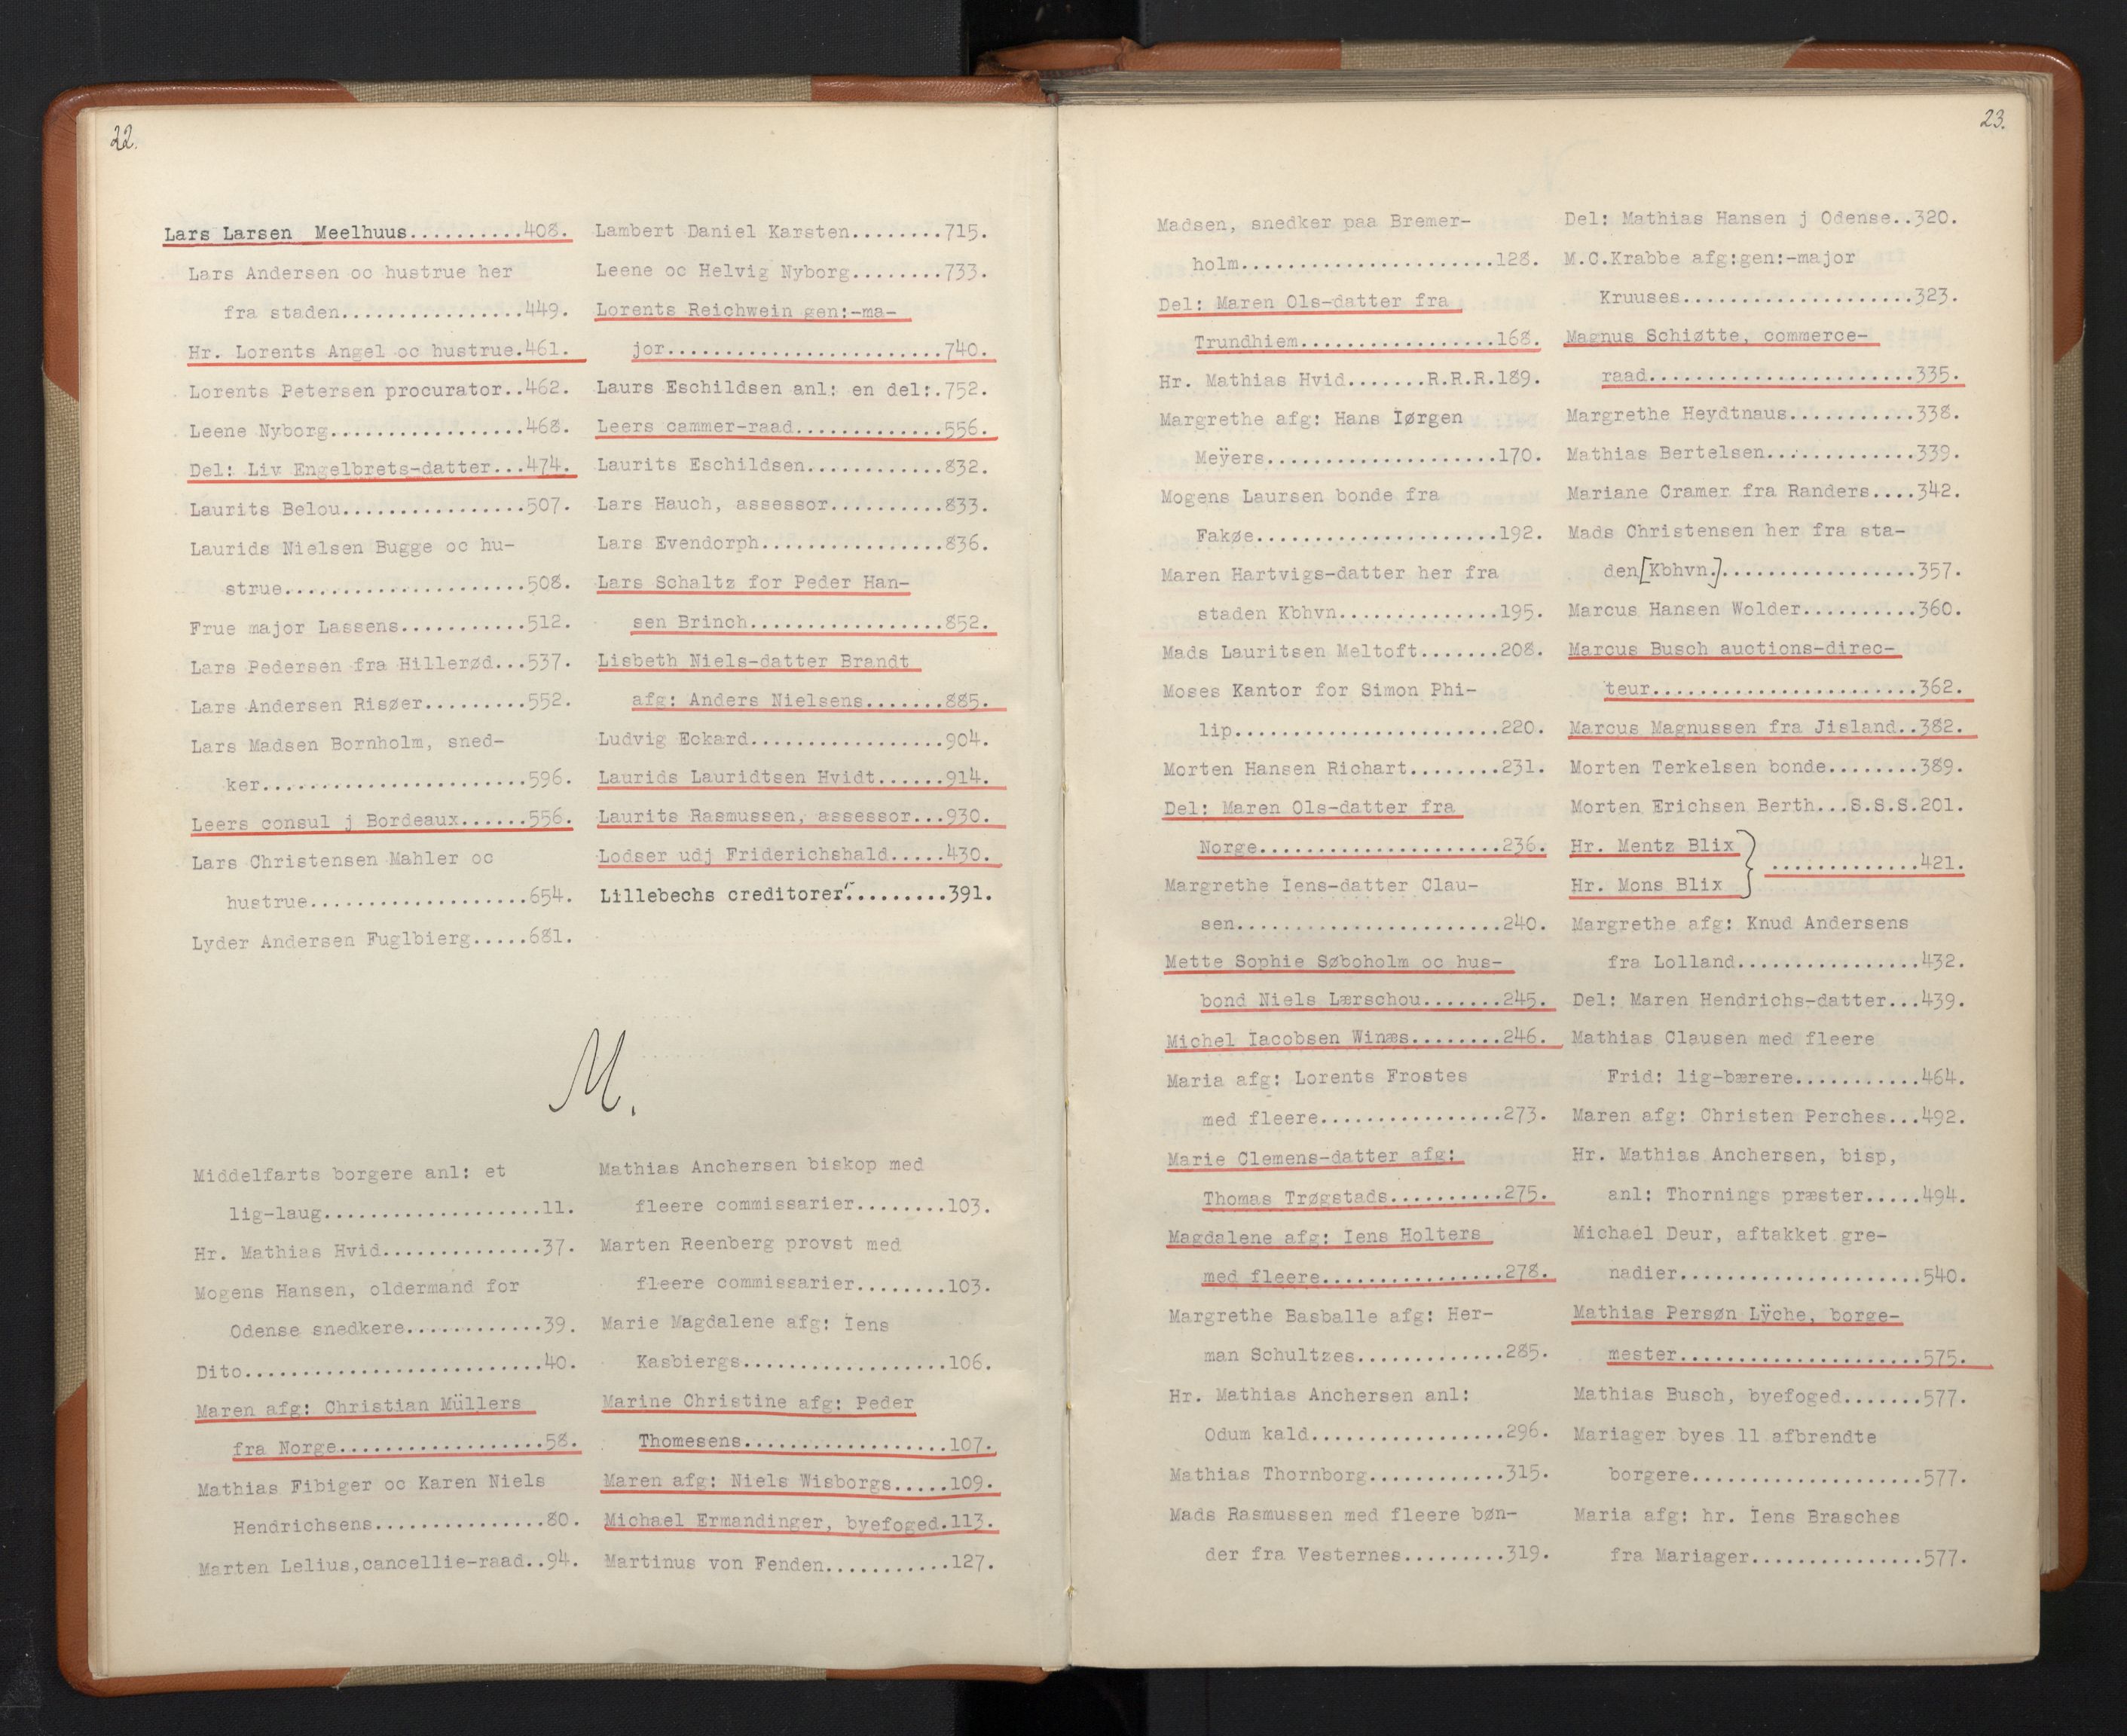 22.
Lars Larsen Meelhuus..........408.
Lars Andersen oc hustrue her
fra staden................449.
Hr. Lorents Angel oc hustrue.461.
Lorents Petersen procurator..462.
Leene Nyborg.................468.
Del: Liv Engelbrets-datter...474.
Laurits Belou................507.
Laurids Nielsen Bugge oc hu-
strue.....................508.
Frue major Lassens...........512.
Lars Pedersen fra Hillerød...537.
Lars Andersen Risøer.........552.
Lars Madsen Bornholm, sned-
ker.......................596.
Leers consul j Bordeaux......556.
Lars Christensen Mahler oc
hustrue...................654.
Lyder Andersen Fuglbierg.....681.
Lambert Daniel Karsten........715.
Leene oc Helvig Nyborg........733.
Lorents Reichwein gen:-ma-
jor........................740.
Laurs Eschildsen anl: en del:.752.
Leers cammer-raad.............556.
Laurits Eschildsen............832.
Lars Hauch, assessor..........833.
Lars Evendorph................836.
Lars Schaltz for Peder Han-
sen Brinch.................852.
Lisbeth Niels-datter Brandt
afg: Anders Nielsens.......885.
Ludvig Eckard.................904.
Laurids Lauridtsen Hvidt......914.
Laurits Rasmussen, assessor...930.
Lodser udj Friderichshald.....430.
Lillebechs creditorer.........391.
M.
Middelfarts borgere anl: et
lig-laug...................11.
Hr. Mathias Hvid..............37.
Mogens Hansen, oldermand for
Odense snedkere............39.
Dito..........................40.
Maren afg: Christian Müllers
fra Norge..................58.
Mathias Fibiger oc Karen Niels
Hendrichsens...............80.
Marten Lelius,cancellie-raad..94.
Mathias Anchersen biskop med
fleere commissarier........103.
Marten Reenberg provst med
fleere commissarier........103.
Marie Magdalene afg: Iens
Kasbiergs..................106.
Marine Christine afg: Peder
Thomesens..................107.
Maren afg: Niels Wisborgs.....109.
Michael Ermandinger, byefoged.113.
Martinus von Fenden...........127.
23.
Madsen, snedker paa Bremer-
holm......................128.
Del: Maren Ols-datter fra
Trundhiem.................168.
Hr. Mathias Hvid.......R.R.R.189.
Margrethe afg: Hans Iørgen
Meÿers....................170.
Mogens Laursen bonde fra
Fakøe.....................192.
Maren Hartvigs-datter her fra
staden Kbhvn..............195.
Mads Lauritsen Meltoft.......208.
Moses Kantor for Simon Phi-
lip.......................220.
Morten Hansen Richart........231.
Del: Maren Ols-datter fra
Norge.....................236.
Margrethe Iens-datter Clau-
sen.......................240.
Mette Sophie Søboholm oc hus-
bond Niels Lærschou.......245.
Michel Iacobsen Winæs........246.
Maria afg: Lorents Frostes
med fleere................273.
Marie Clemens-datter afg:
Thomas Trøgstads..........275.
Magdalene afg: Iens Holters
med fleere................278.
Margrethe Basballe afg: Her-
man Schultzes.............285.
Hr. Mathias Anchersen anl:
Odum kald.................296.
Mathias Thornborg............315.
Mads Rasmussen med fleere bøn-
der fra Vesternes.........319.
Del: Mathias Hansen j Odense..320.
M.C.Krabbe afg:gen:-major
Kruuses....................323.
Magnus Schiøtte, commerce-
raad.......................335.
Margrethe Heydtnaus...........338.
Mathias Bertelsen.............339.
Mariane Cramer fra Randers....342.
Mads Christensen her fra sta-
den[Kbhvn.].................357.
Marcus Hansen Wolder..........360.
Marcus Busch auctions-direc-
teur.......................362.
Marcus Magnussen fra Jisland..382.
Morten Terkelsen bonde........389.
Morten Erichsen Berth...S.S.S.201.
Hr. Mentz Blix
.............421.
Hr. Mons Blix
Margrethe afg: Knud Andersens
fra Lolland................432.
Del: Maren Hendrichs-datter...439.
Mathias Clausen med fleere
Frid: lig-bærere...........464.
Maren afg: Christen Perches...492.
Hr. Mathias Anchersen, bisp,
anl: Thornings præster.....494.
Michael Deur, aftakket gre-
nadier.....................540.
Mathias Persøn Lÿche, borge-
mester.....................575.
Mathias Busch, byefoged.......577.
Mariager byes 11 afbrendte
borgere....................577.
Maria afg: hr. Iens Brasches
fra Mariager...............577.